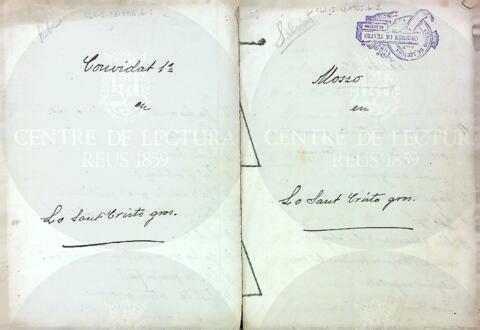 Convidat 1ª
en
Lo Sant Cristo gros.
Mosso
en
Lo Sant Cristo gros.
CENTRE DE LECTURA
REUS 1859
CENTRE DE LECTURA
REUS 1859